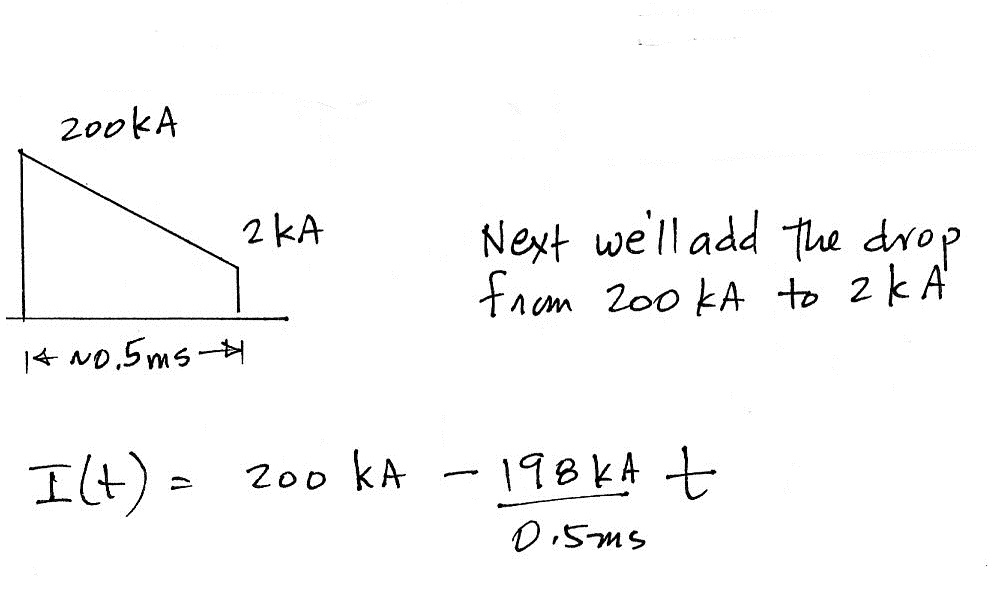 200kA
2 kA
Next we'll add the drop
from 200 kA to 2 kA
~0.5ms
I(t) = 200 kA - 198 kA t
0.5ms